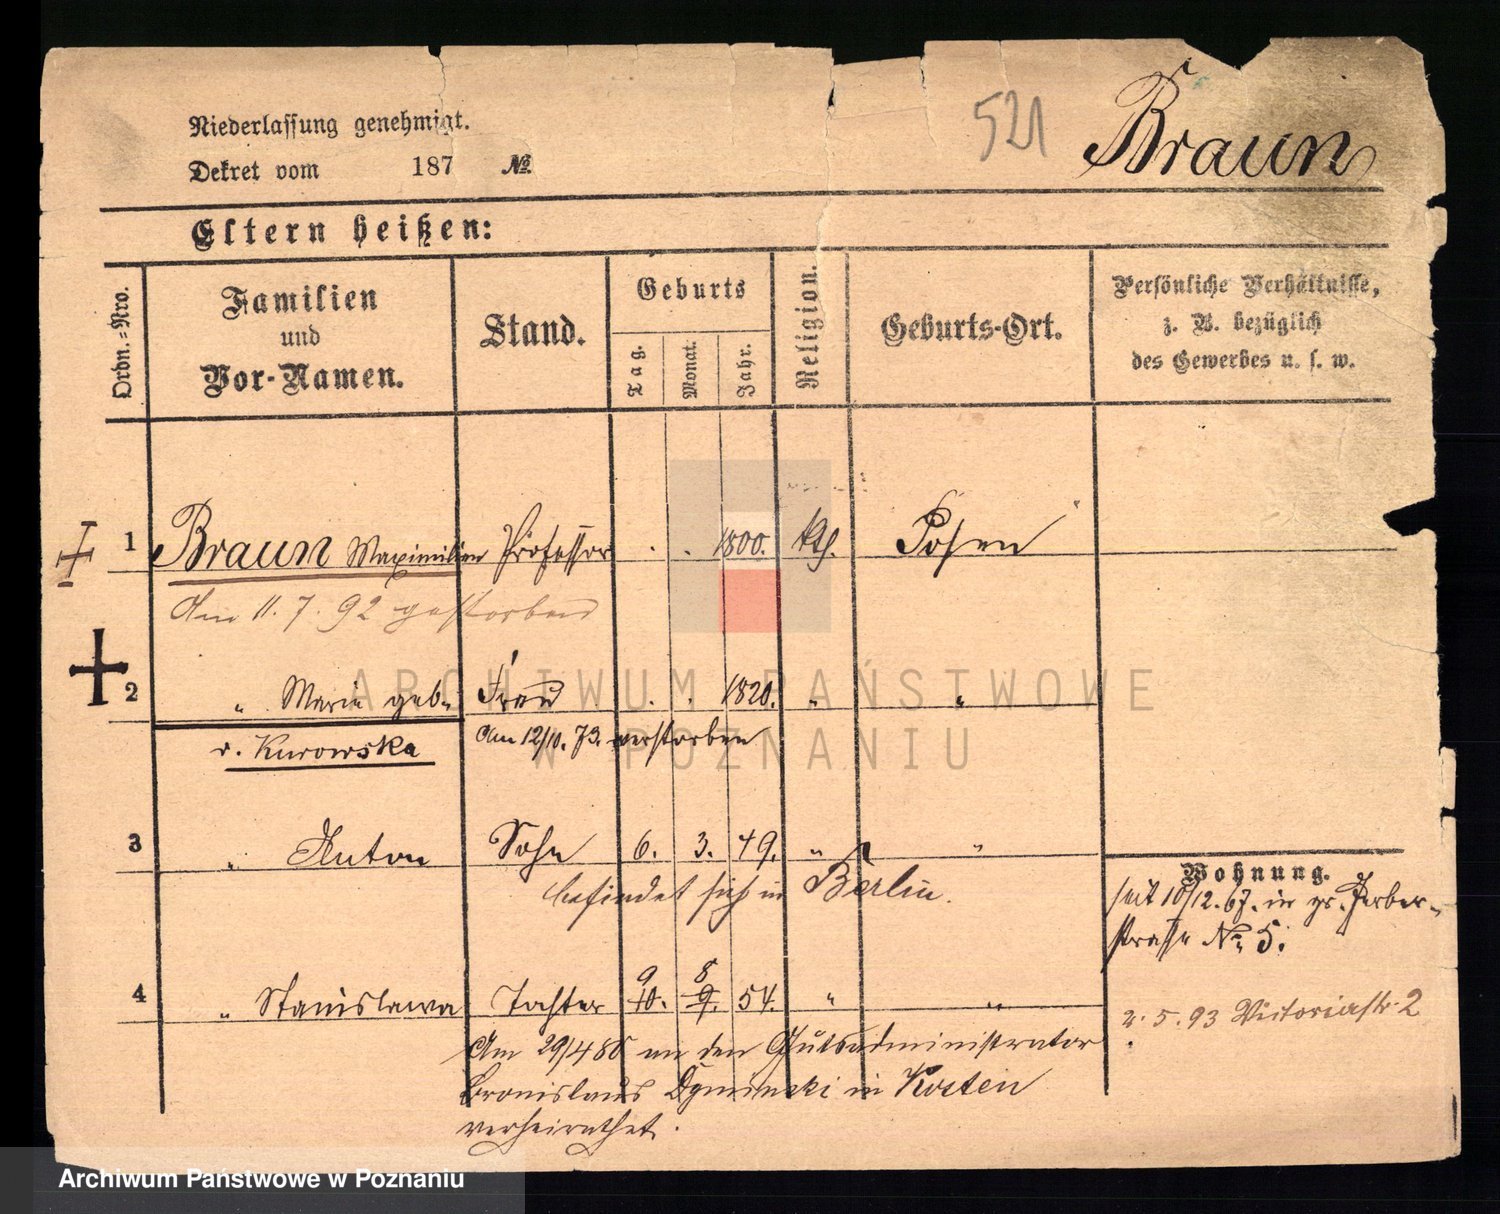 Niederlassung genehmigt.
Dekret vom 187 №
521
Braun
Eltern heißen:
Ordn.=Nro.
Familien
und
Vor-Namen.
Stand.
Geburts
Tag.
Monat.
Jahr.
Religion.
Geburts-Ort.
Persönliche Verhältnisse,
z. B. bezüglich
des Gewerbes u. s. w.
1 Braun Maximilian Professor . . 1800. kth. Posen
Am 11. 7. 92 gestorben
2 " Marie geb. Frau . . 1820. " "
v. Kurowska Am 12/10. 73. verstorben
3 " Anton Sohn 6. 3. 49. " "
befindet sich in Berlin.
Wohnung.
seit 10/12. 67. in gr. Gerber-
strasse No 5.
4 " Stanislawa Tochter 10. 9. 54. " "
9 8
2. 5. 93 Victoriastr. 2
Am 29/4 80 an den Gutsadministrator
Bronislaus in Kosten
verheirathet.
ARCHIWUM PAŃSTWOWE
W POZNANIU
Archiwum Państwowe w Poznaniu